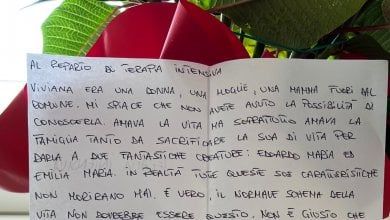 AL REPARTO DI TERAPIA INTENSIVA
VIVIANA ERA UNA DONNA, UNA MOGLIE, UNA MAMMA FUORI DAL
COMUNE. MI SPIACE CHE NON AVETE AVUTO LA POSSIBILITÀ DI
CONOSCERLA. AMAVA LA VITA MA SOPRATTUTTO AMAVA LA
FAMIGLIA TANTO DA SACRIFICARE LA SUA DI VITA PER
DARLA A DUE FANTASTICHE CREATURE: EDOARDO MARIA ED
EMILIA MARIA. IN REALTÀ TUTTE QUESTE SUE CARATTERISTICHE
NON MORIRANO MAI. È VERO, IL NORMALE SCHEMA DELLA
VITA NON DOVREBBE ESSERE QUESTO. NON È GIUSTO CHE